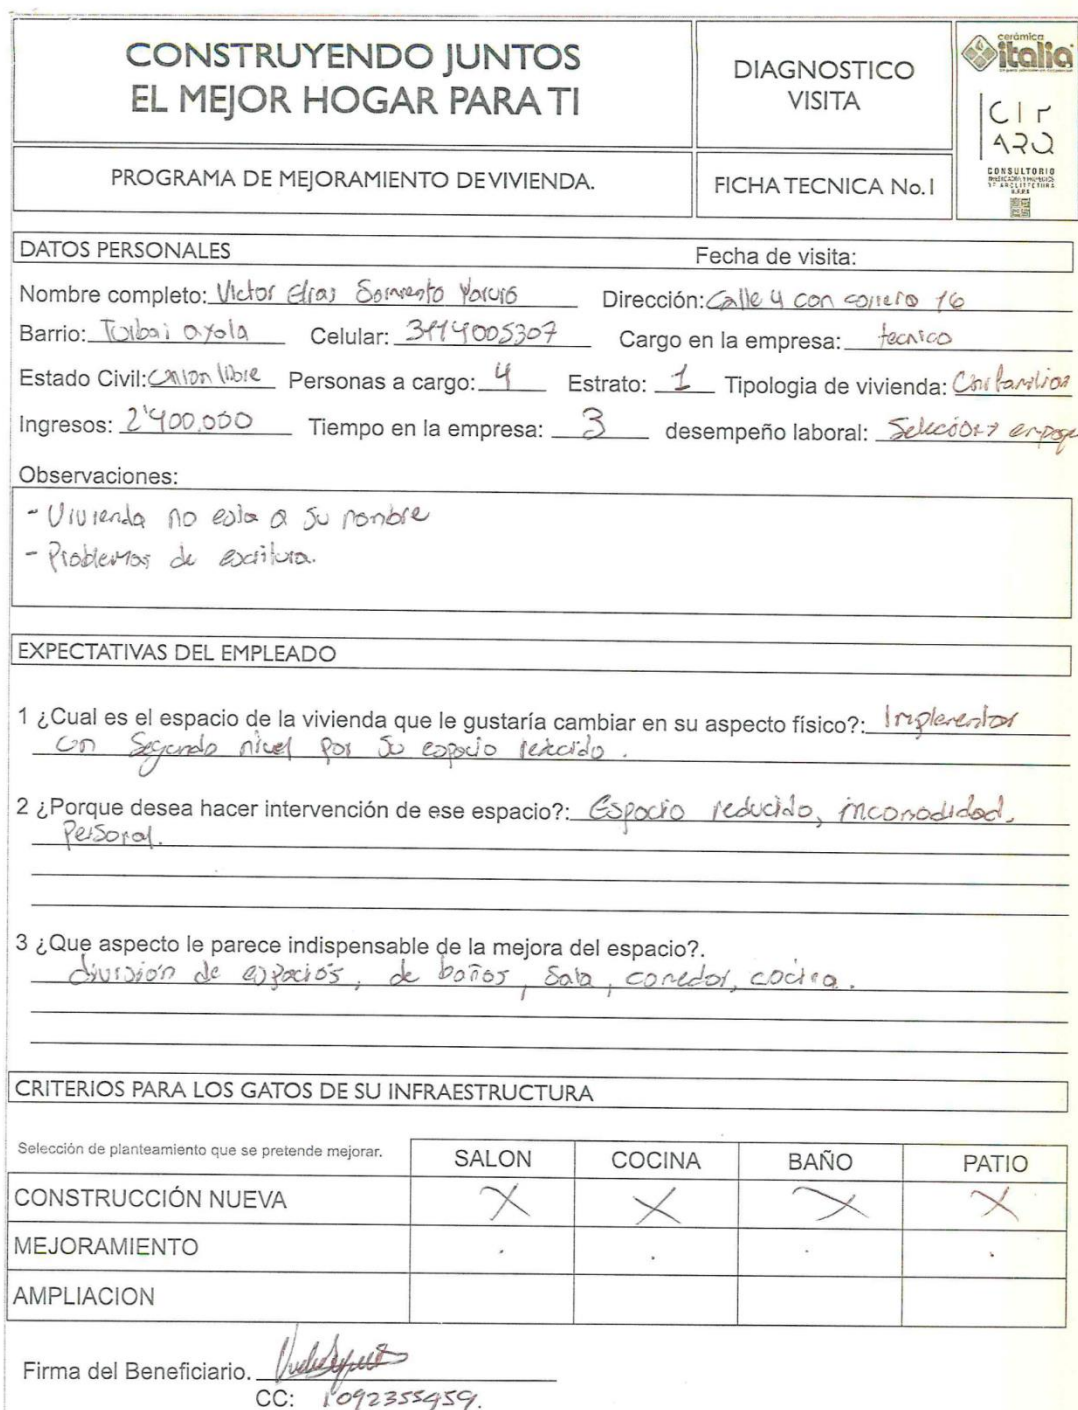 CONSTRUYENDO JUNTOS
EL MEJOR HOGAR PARA TI
DIAGNOSTICO
VISITA
cerámica
italia
CIPARQ
CONSULTORIO
PROGRAMA DE MEJORAMIENTO DE VIVIENDA.
FICHA TECNICA No. 1
DATOS PERSONALES Fecha de visita:
Nombre completo: Victor Dirección: Calle 4 con carrera 16
Barrio: Celular: Cargo en la empresa: tecnico
Estado Civil: Union libre Personas a cargo: 4 Estrato: 1 Tipologia de vivienda: Unifamiliar
Ingresos: 2'400.000 Tiempo en la empresa: 3 desempeño laboral:
Observaciones:
- Vivienda no esta a su nombre
- Problemas de escritura.
EXPECTATIVAS DEL EMPLEADO
1 ¿Cual es el espacio de la vivienda que le gustaría cambiar en su aspecto físico?: Implementar
un Segundo nivel por su espacio reducido.
2 ¿Porque desea hacer intervención de ese espacio?: Espacio reducido, incomodidad.
Personal.
3 ¿Que aspecto le parece indispensable de la mejora del espacio?.
división de espacios, de baños, Sala, comedor, cocina.
CRITERIOS PARA LOS GATOS DE SU INFRAESTRUCTURA
Selección de planteamiento que se pretende mejorar. SALON COCINA BAÑO PATIO
CONSTRUCCIÓN NUEVA X X X X
MEJORAMIENTO
AMPLIACION
Firma del Beneficiario.
CC: 1092355959.